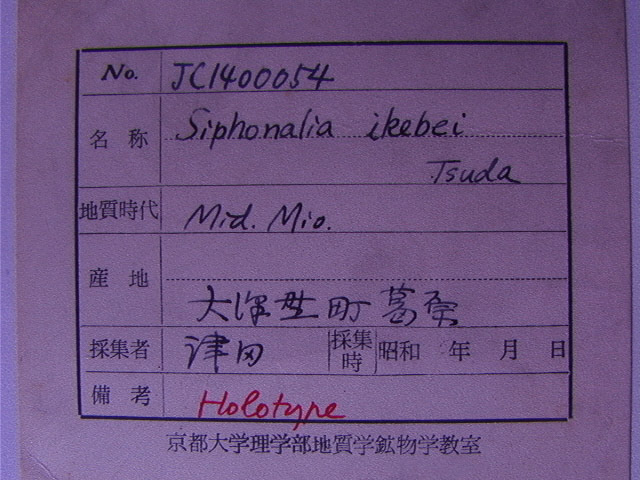 No. JC1400054
名称 Siphonalia ikebei
Tsuda
地質時代 Mid. Mio.
産地
大深野町 葛原
採集者 津田 採集時 昭和 年 月 日
備考 Holotype
京都大学理学部地質学鉱物学教室